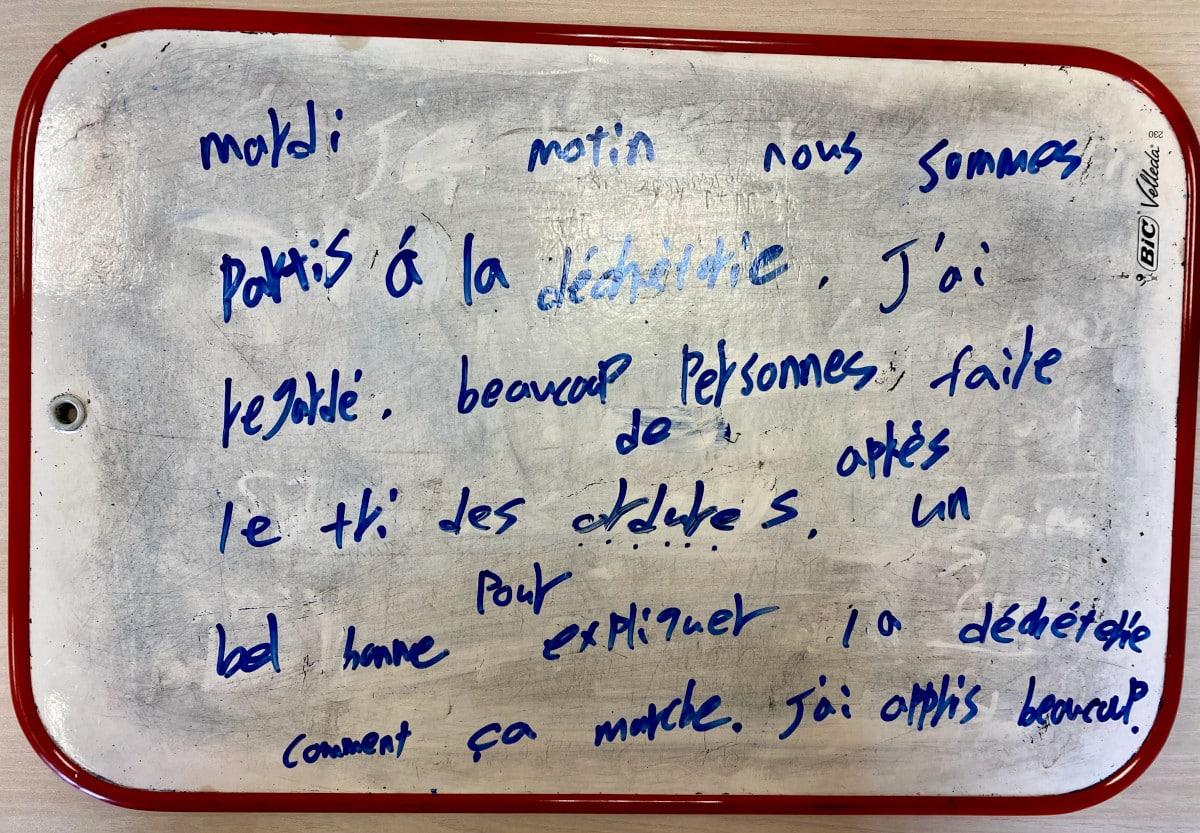 mardi matin nous sommes
partis á la déchéterie. J'ai
regardé. beaucoup personnes faire
de
après
le tri des ordures. un
pour
bel homme expliquer la déchéterie
comment ça marche. J'ai appris beaucoup.
BIC Velleda
230